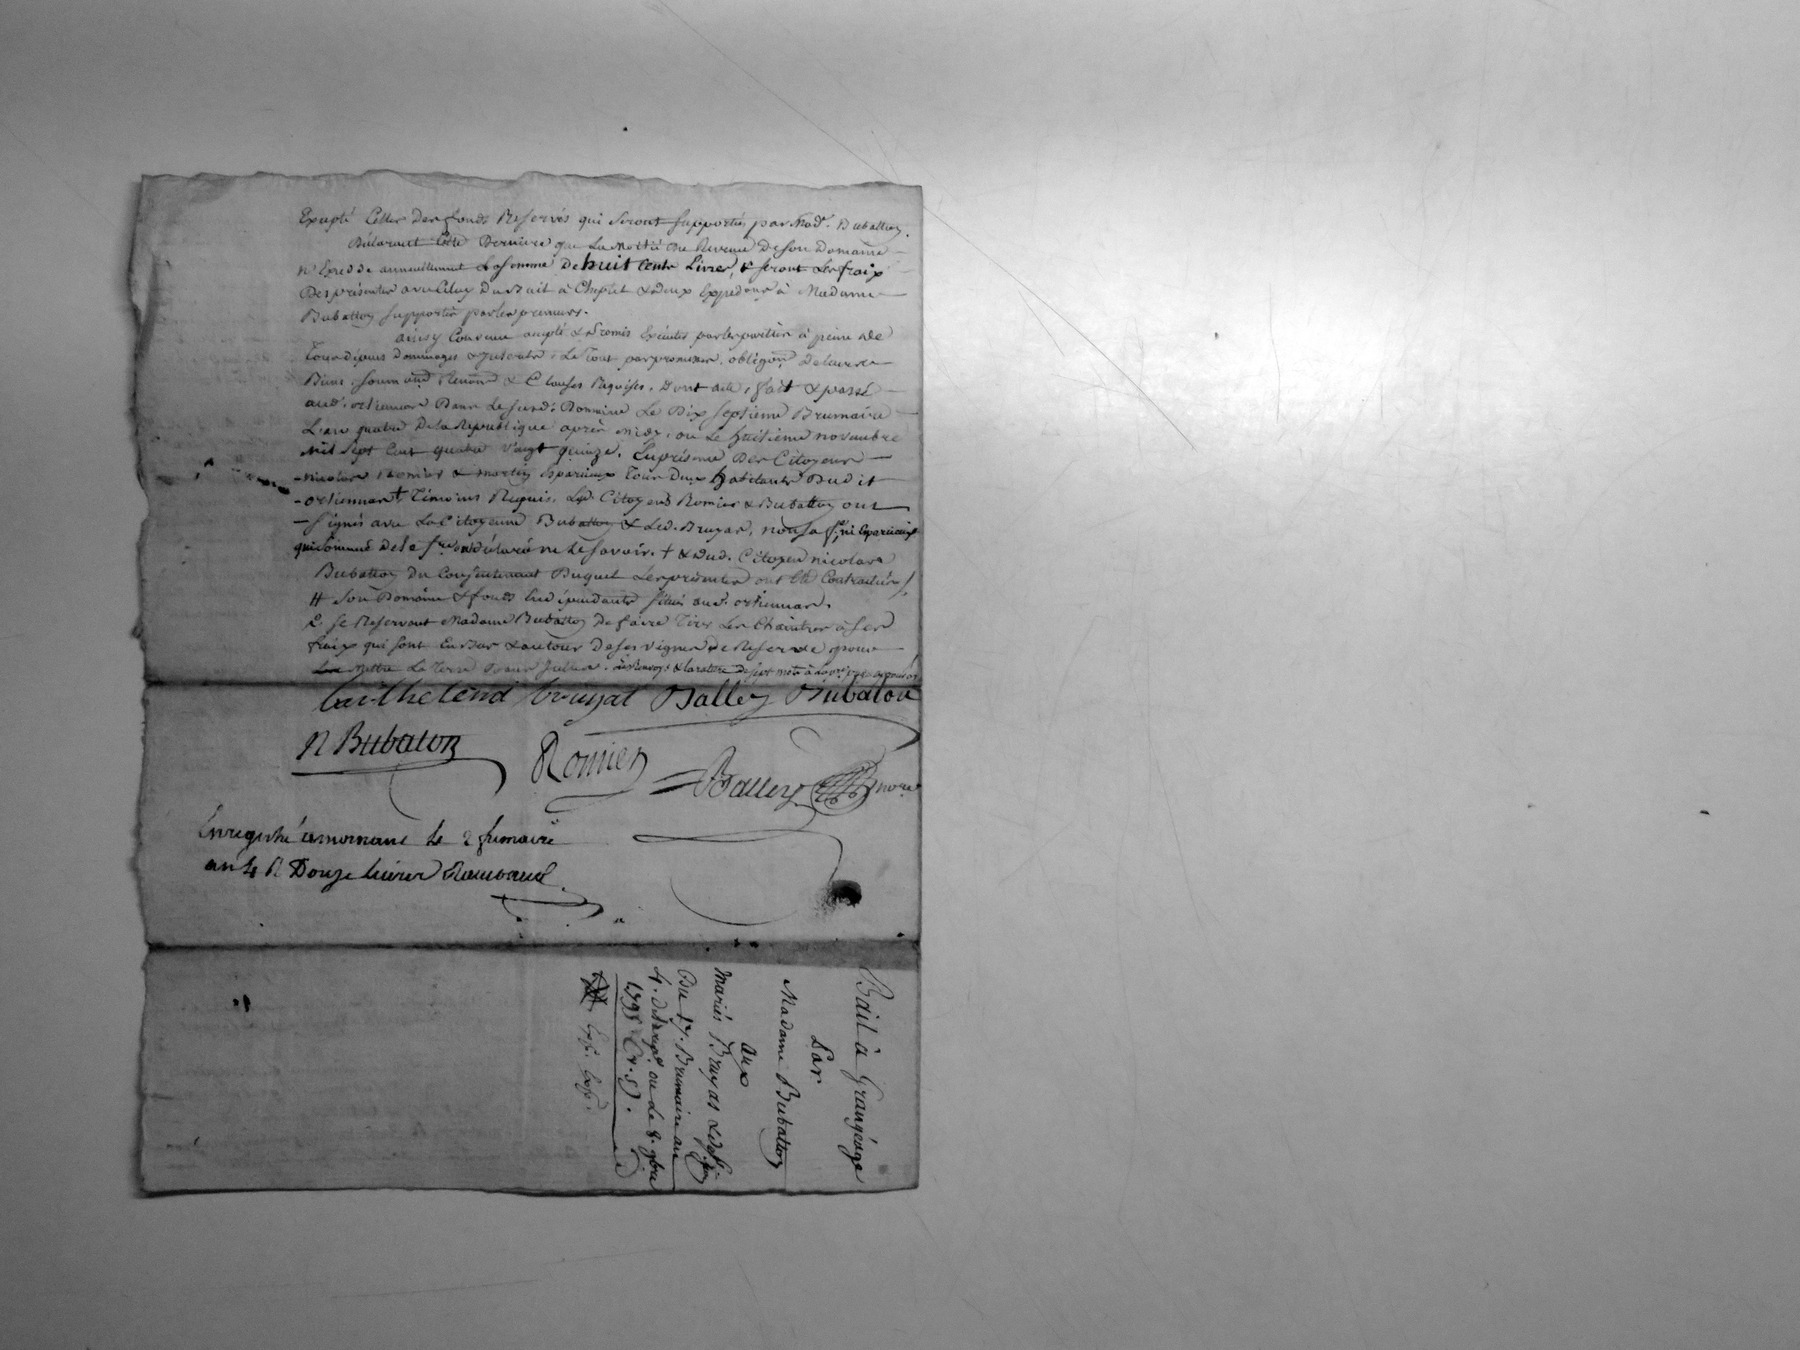 Excepté Celles des fonds Reservés qui seront supportés par Mad.e Bubatton.
Déclarant cette Derniere que La moitié du Revenu de son Domaine
n'Excedde annuellement La somme de huit Cents Livres, & seront Les frais
Des présentes avec Celuy Du Bail à Cheptel & Deux Expédons à Madame
Bubatton supportés par les preneurs.
ainsy Convenu accepté & Promis Exécuter par les parties à peine de
Tous dépens Dommages & Interets, Le Tout par promesses, obligons De leurs
Biens, soumons Renonons & Clauses Requises, Dont acte, fait & passé
aud. orliennas Dans Le susd. Domaine Le Dix septieme Brumaire
L'an quatre De la Republique après midy, ou Le huitieme novembre
mil sept Cent quatre vingt quinze, En présence Des Citoyens
nicolas Romier & martin Tous Deux habitants Dudit
orliennas + Témoins Requis, Les Citoyens Romier & Bubatton ont
signés avec La Citoyenne Bubatton & Led. Bruyas, non sa f.e ni
qui sommé de le f.re ont déclaré ne Le savoir. + & Dud. Citoyen nicolas
Bubatton Du Consentement Duquel Les présentes ont été Contractées /.
# son Domaine & fonds En dépendants situés aud. orliennas.
2. se Reservant Madame Bubatton De faire Tirer Les Chaintres à ses
frais qui sont En Bas & autour De ses vignes De Reserve pour
mettre La Terre Dans
bruyat Balley Bubaton
N Bubaton
Romier
Balley
Enregistré a mornant le 2 frimaire
an 4 R Douze livres
Bail à Grangéage
Par
Madame Bubatton
aux
Mariés Bruyas
Du 17. Brumaire an
4. de la rep.e ou Le 8. 9bre
1795 (v. s.).
Exp. Exp.